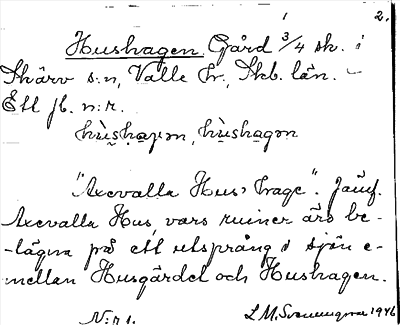 2.
Hushagen Gård 3/4 sk. i
Skärv s:n, Valle hr., Skb. län.
Ett jb. n:r.
hùshaɲən, hùshagən
"Axevalla Hus' hage". Jämf.
Axevalla Hus, vars ruiner äro be-
-lägna på ett utsprång i sjön e-
mellan Husgärdet och Hushagen.
N:r 1. L. M. Svenungsson 1946